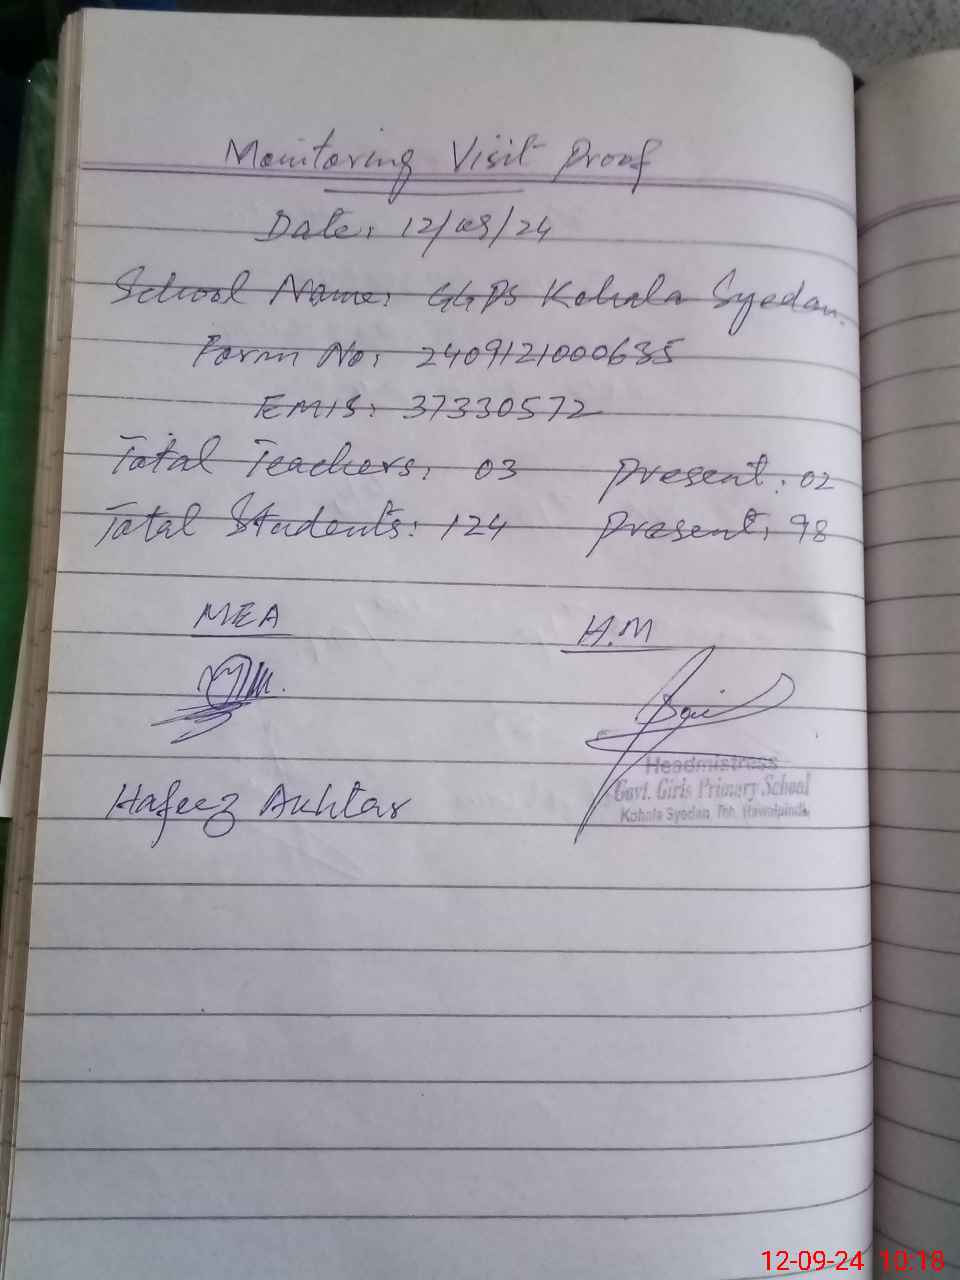 Monitoring Visit Proof
Date: 12/09/24
School Name: GGPS Kohala Syedan.
Form No: 2409121000635
EMIS: 37330572
Total Teachers: 03 Present: 02
Total Students: 124 Present: 98
MEA H.M
Headmistress
Govt. Girls Primary School
Kohala Syedan Teh. Rawalpindi
Hafeez Akhtar
12-09-24 10:18